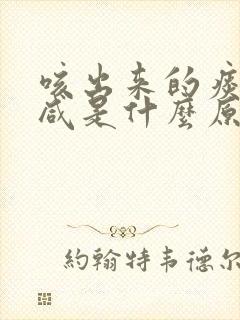 咳出来的痰
咸是什麼原
約翰特韦德尔